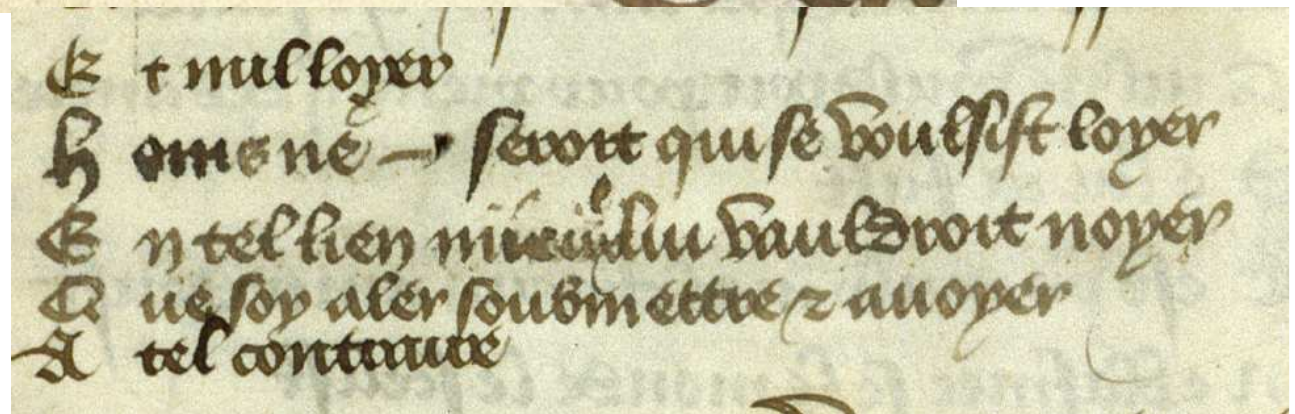 Et nul loyer
homs ne seroit qui se voulsist loyer
En tel lien mieulx lui vauldroit noyer
Que soy aler soubmettre ⁊ auoyer
A tel contraire